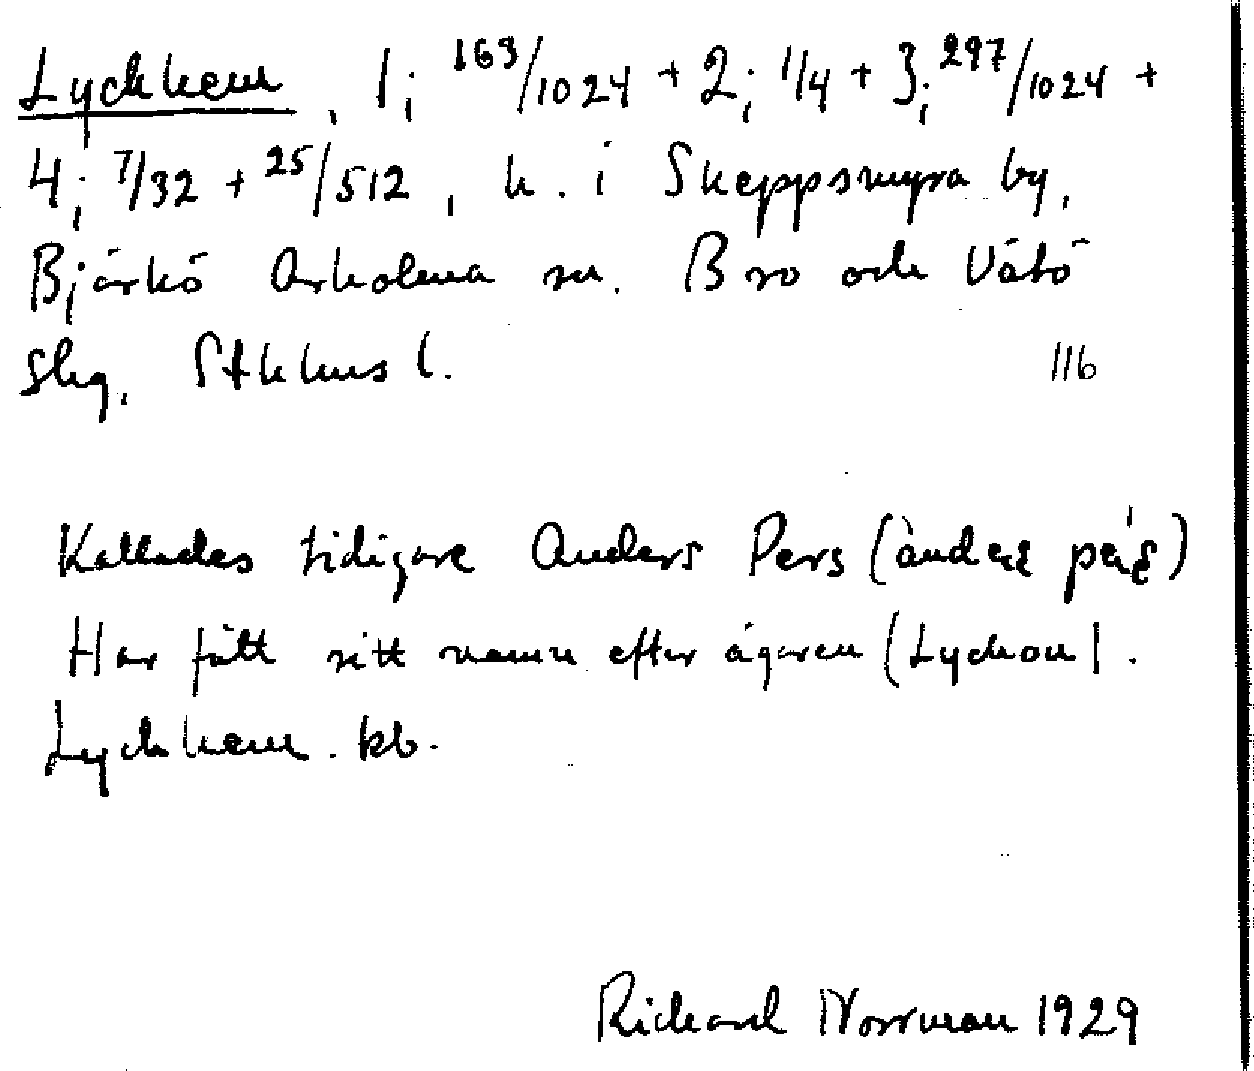 Lyckhem, 1; 163/1024 + 2; 1/4 + 3; 297/1024 +
4; 7/32 + 25/512, h. i Skeppsmyra by,
Björkö Arholma sn. Bro och Vätö
skg, Sthlms l. 116
Kallades tidigare Anders Pers (
Har fått sitt namn efter ägaren (Lyckou).
Lyckhem. kb.
Richard Norrman 1929